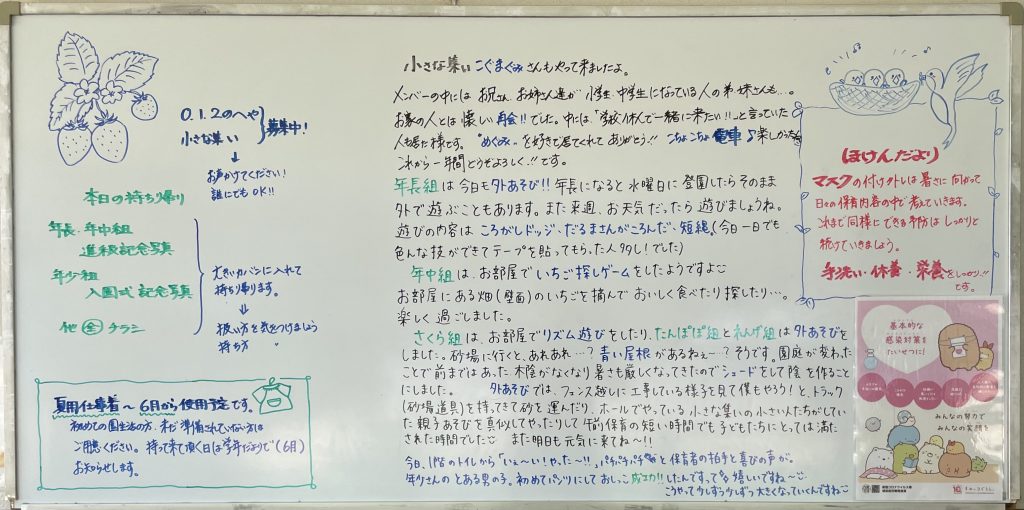 0.1.2のへや
小さな集い
募集中!
↓
お声かけてください!
誰にでもOK!!
本日の持ち帰り
年長・年中組
進級記念写真
年少組
入園式記念写真
他 全 チラシ
大きいカバンに入れて
持ち帰ります。
↓
扱い方を気をつけましょう
持ち方
夏用仕事着〜6月から使用予定です。
初めての園生活の方、未だ準備されていない方は
ご用意ください。持って来て頂く日は学年だよりで(6月)
お知らせします。
小さな集い こぐまぐみさんもやって来ましたよ。
メンバーの中には お兄さん、お姉さん達が 小学生、中学生になっている人の弟・妹さんも…。
お家の人とは懐しい再会!!でした。中には、「学校休んで一緒に来たい!!」と言っていた
人も居た様です。"めぐみ"を好きで居てくれて ありがとう!! 電車♪楽しかったね
これから一年間どうぞよろしく!!です。
年長組は今日も外あそび!! 年長になると水曜日に登園したらそのまま
外で遊ぶこともあります。また来週、お天気だったら遊びましょうね。
遊びの内容は ころがしドッジ、だるまさんがころんだ、短縄(今日一日でも
色んな技ができてテープを貼ってもらった人多し!でした)
年中組は、お部屋でいちご探しゲームをしたようですよ
お部屋にある畑(壁面)のいちごを摘んでおいしく食べたり探したり…。
楽しく過ごしました。
さくら組は、お部屋でリズム遊びをしたり、たんぽぽ組とれんげ組は外あそびを
しました。砂場に行くと、あれあれ…?青い屋根があるねぇ〜?そうです。園庭が変わった
ことで前まではあった木陰がなくなり暑さも厳しくなってきたのでシェードをして陰を作ること
にしました。 外あそびでは、フェンス越しに工事している様子を見て僕もやろう!と、トラック
(砂場道具)を持ってきて砂を運んだり、ホールでやっている小さな集いの小さい人たちがしてい
た親子あそびを真似してやったりして午前保育の短い時間でも子どもたちにとっては満た
された時間でした また明日も元気に来てね〜!!
今日、1階のトイレから「いぇ〜い!やった〜!!」パチパチパチと保育者の拍手と喜びの声が。
年少さんのとある男の子。初めてパンツにしておしっこ成功!!したんですって 嬉しいですね〜
こうやって少しずつ少しずつ大きくなっていくんですね
ほけんだより
マスクの付け外しは暑さに向かって
日々の保育内容の中で考えていきます。
これまで同様にできる予防はしっかりと
続けていきましょう。
手洗い・休養・栄養をしっかり!!
です。
基本的な
感染対策を
たいせつに!
みんなの努力で
みんなの笑顔を